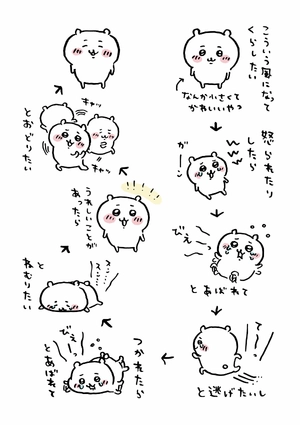 こういう風になって
くらしたい
なんか小さくて
かわいいやつ
怒られたり
したら
ガーン
びえーっ
とあばれて
て！
と逃げたいし
つかれたら
びえー！っ
とあばれて
スン…
スン…
と
ねむりたい
うれしいことが
あったら
キャッ
キャッ
とおどりたい